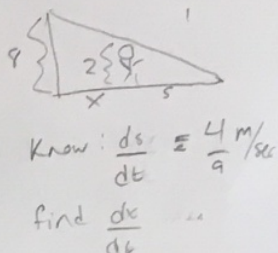 8
2
x s
Know: ds/dt = 4/9 m/sec
find dx/dt